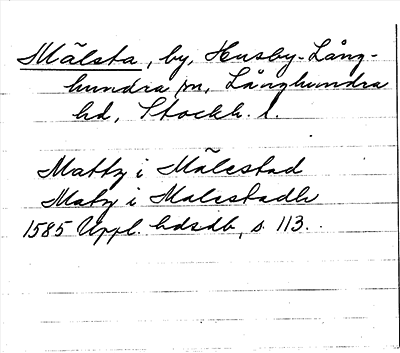 Mälsta, by, Husby-Lång-
hundra sn, Långhundra
hd, Stockh. l.
Matty i Mälestad
Maty i Malestadh
1585 Uppl. hdsdb, s. 113.